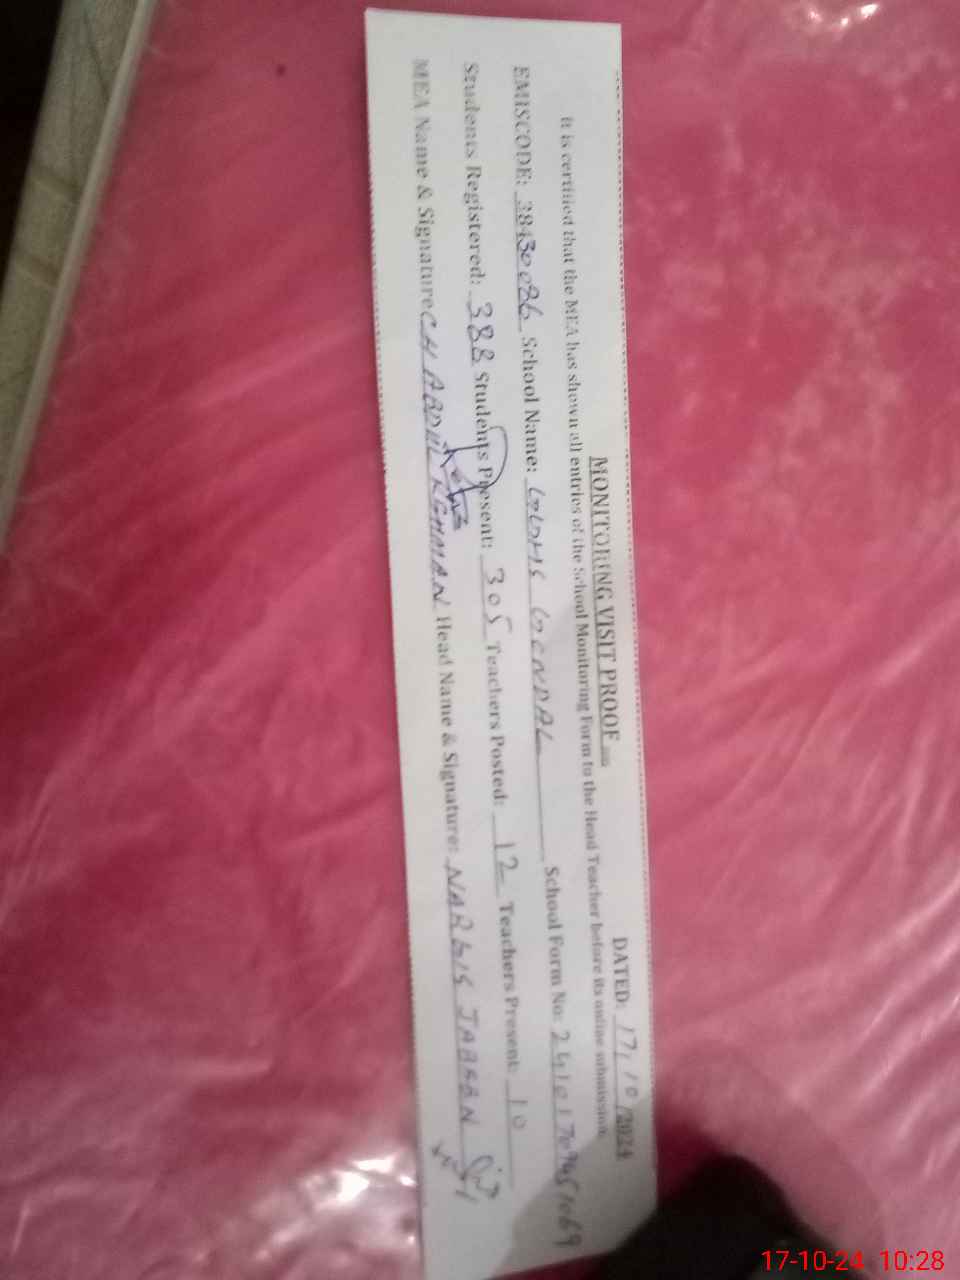 MONITORING VISIT PROOF
DATED: 17/10/2024
It is certified that the MEA has shown all entries of the School Monitoring Form to the Head Teacher before its online submission.
EMISCODE: 38430086 School Name: GGHS GONDAL School Form No:
Students Registered: 388 Students Present: 305 Teachers Posted: 12 Teachers Present: 10
MEA Name & Signature CH ABDUL REHMAN Head Name & Signature: NARGIS JABEEN
17-10-24 10:28